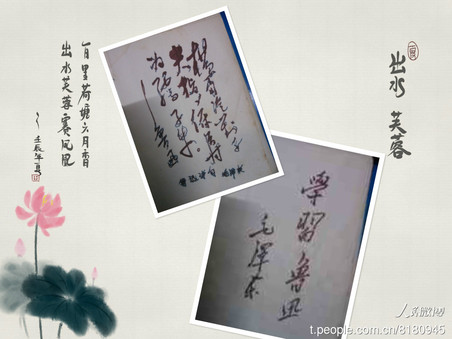 出水 芙蓉
百里荷塘六月香
出水芙蓉赛凤凰
壬辰年夏
横眉冷对千
夫指俯首甘
为孺子牛
鲁迅
學習鲁迅
毛澤东
人民微博
t.people.com.cn/8180945